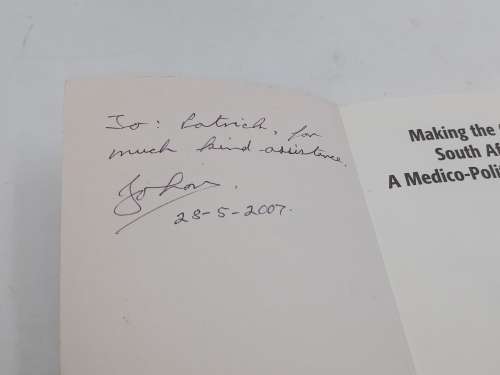 To: Patrick, for
much kind assistance.
28-5-2007.
Making the
South Af
A Medico-Polit